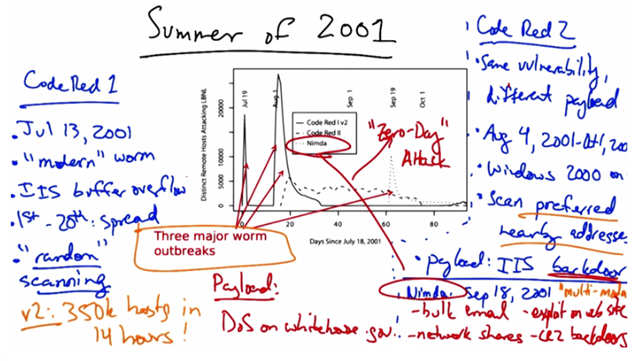 Summer of 2001
Code Red 1
• Jul 13, 2001
• "modern" worm
• IIS buffer overflow
• 1st - 20th: spread
• "random"
scanning
v2: 350k hosts in
14 hours!
Distinct Remote Hosts Attacking LBNL
0 5000 10000 20000
Jul 19
Aug 1
Sep 1
Sep 19
Oct 1
Code Red I v2
Code Red II
Nimda
"Zero-Day"
Attack
0 20 40 60 80
Days Since July 18, 2001
Three major worm
outbreaks
Payload:
DoS on whitehouse.gov!
Code Red 2
• Same vulnerability,
different payload
• Aug 4, 2001-Oct 1, 200
• Windows 2000 on
• Scan preferred
nearby addresse
• payload: IIS backdoor
Nimda: Sep 18, 2001 "multi-moda
- bulk email - exploit on web site
- network shares - CR2 backdoors